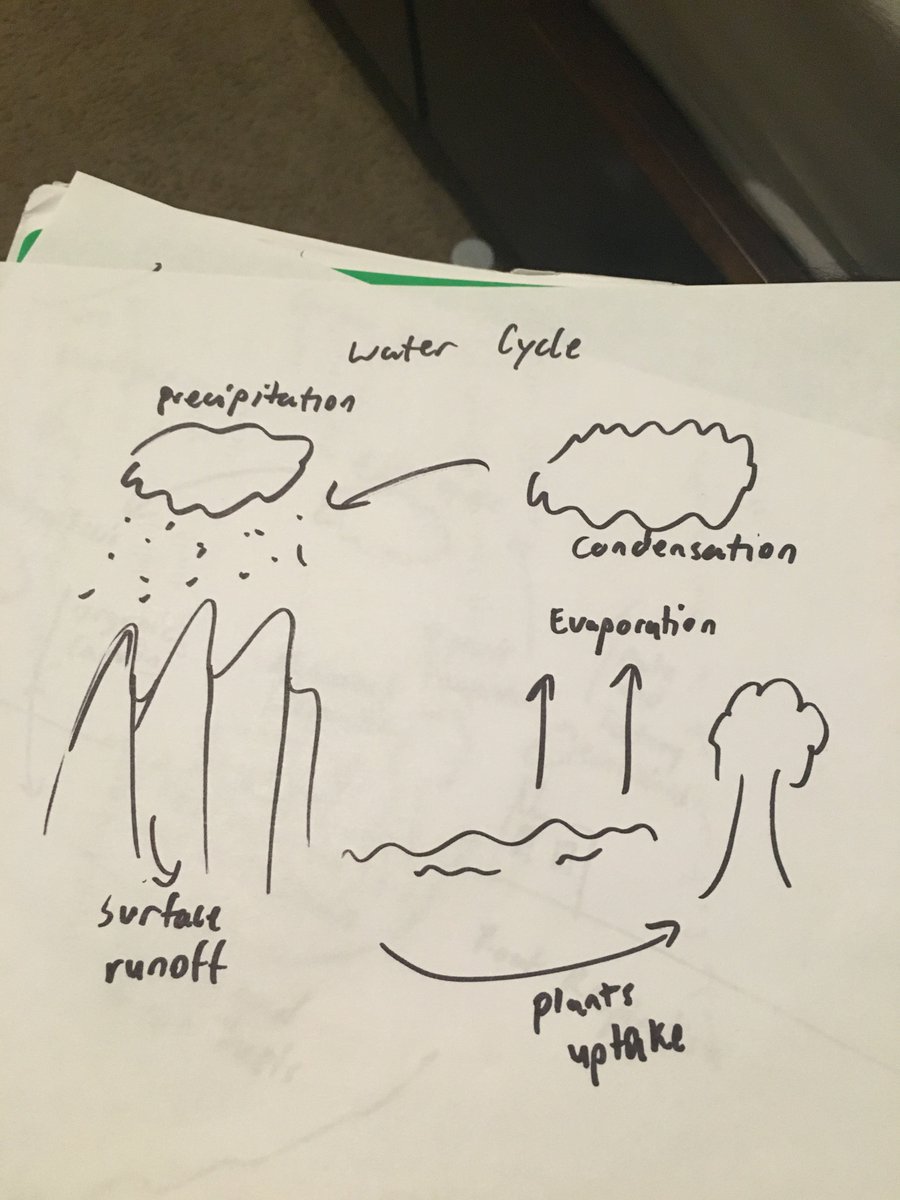 Water Cycle
precipitation
Condensation
Evaporation
surface
runoff
plants
uptake